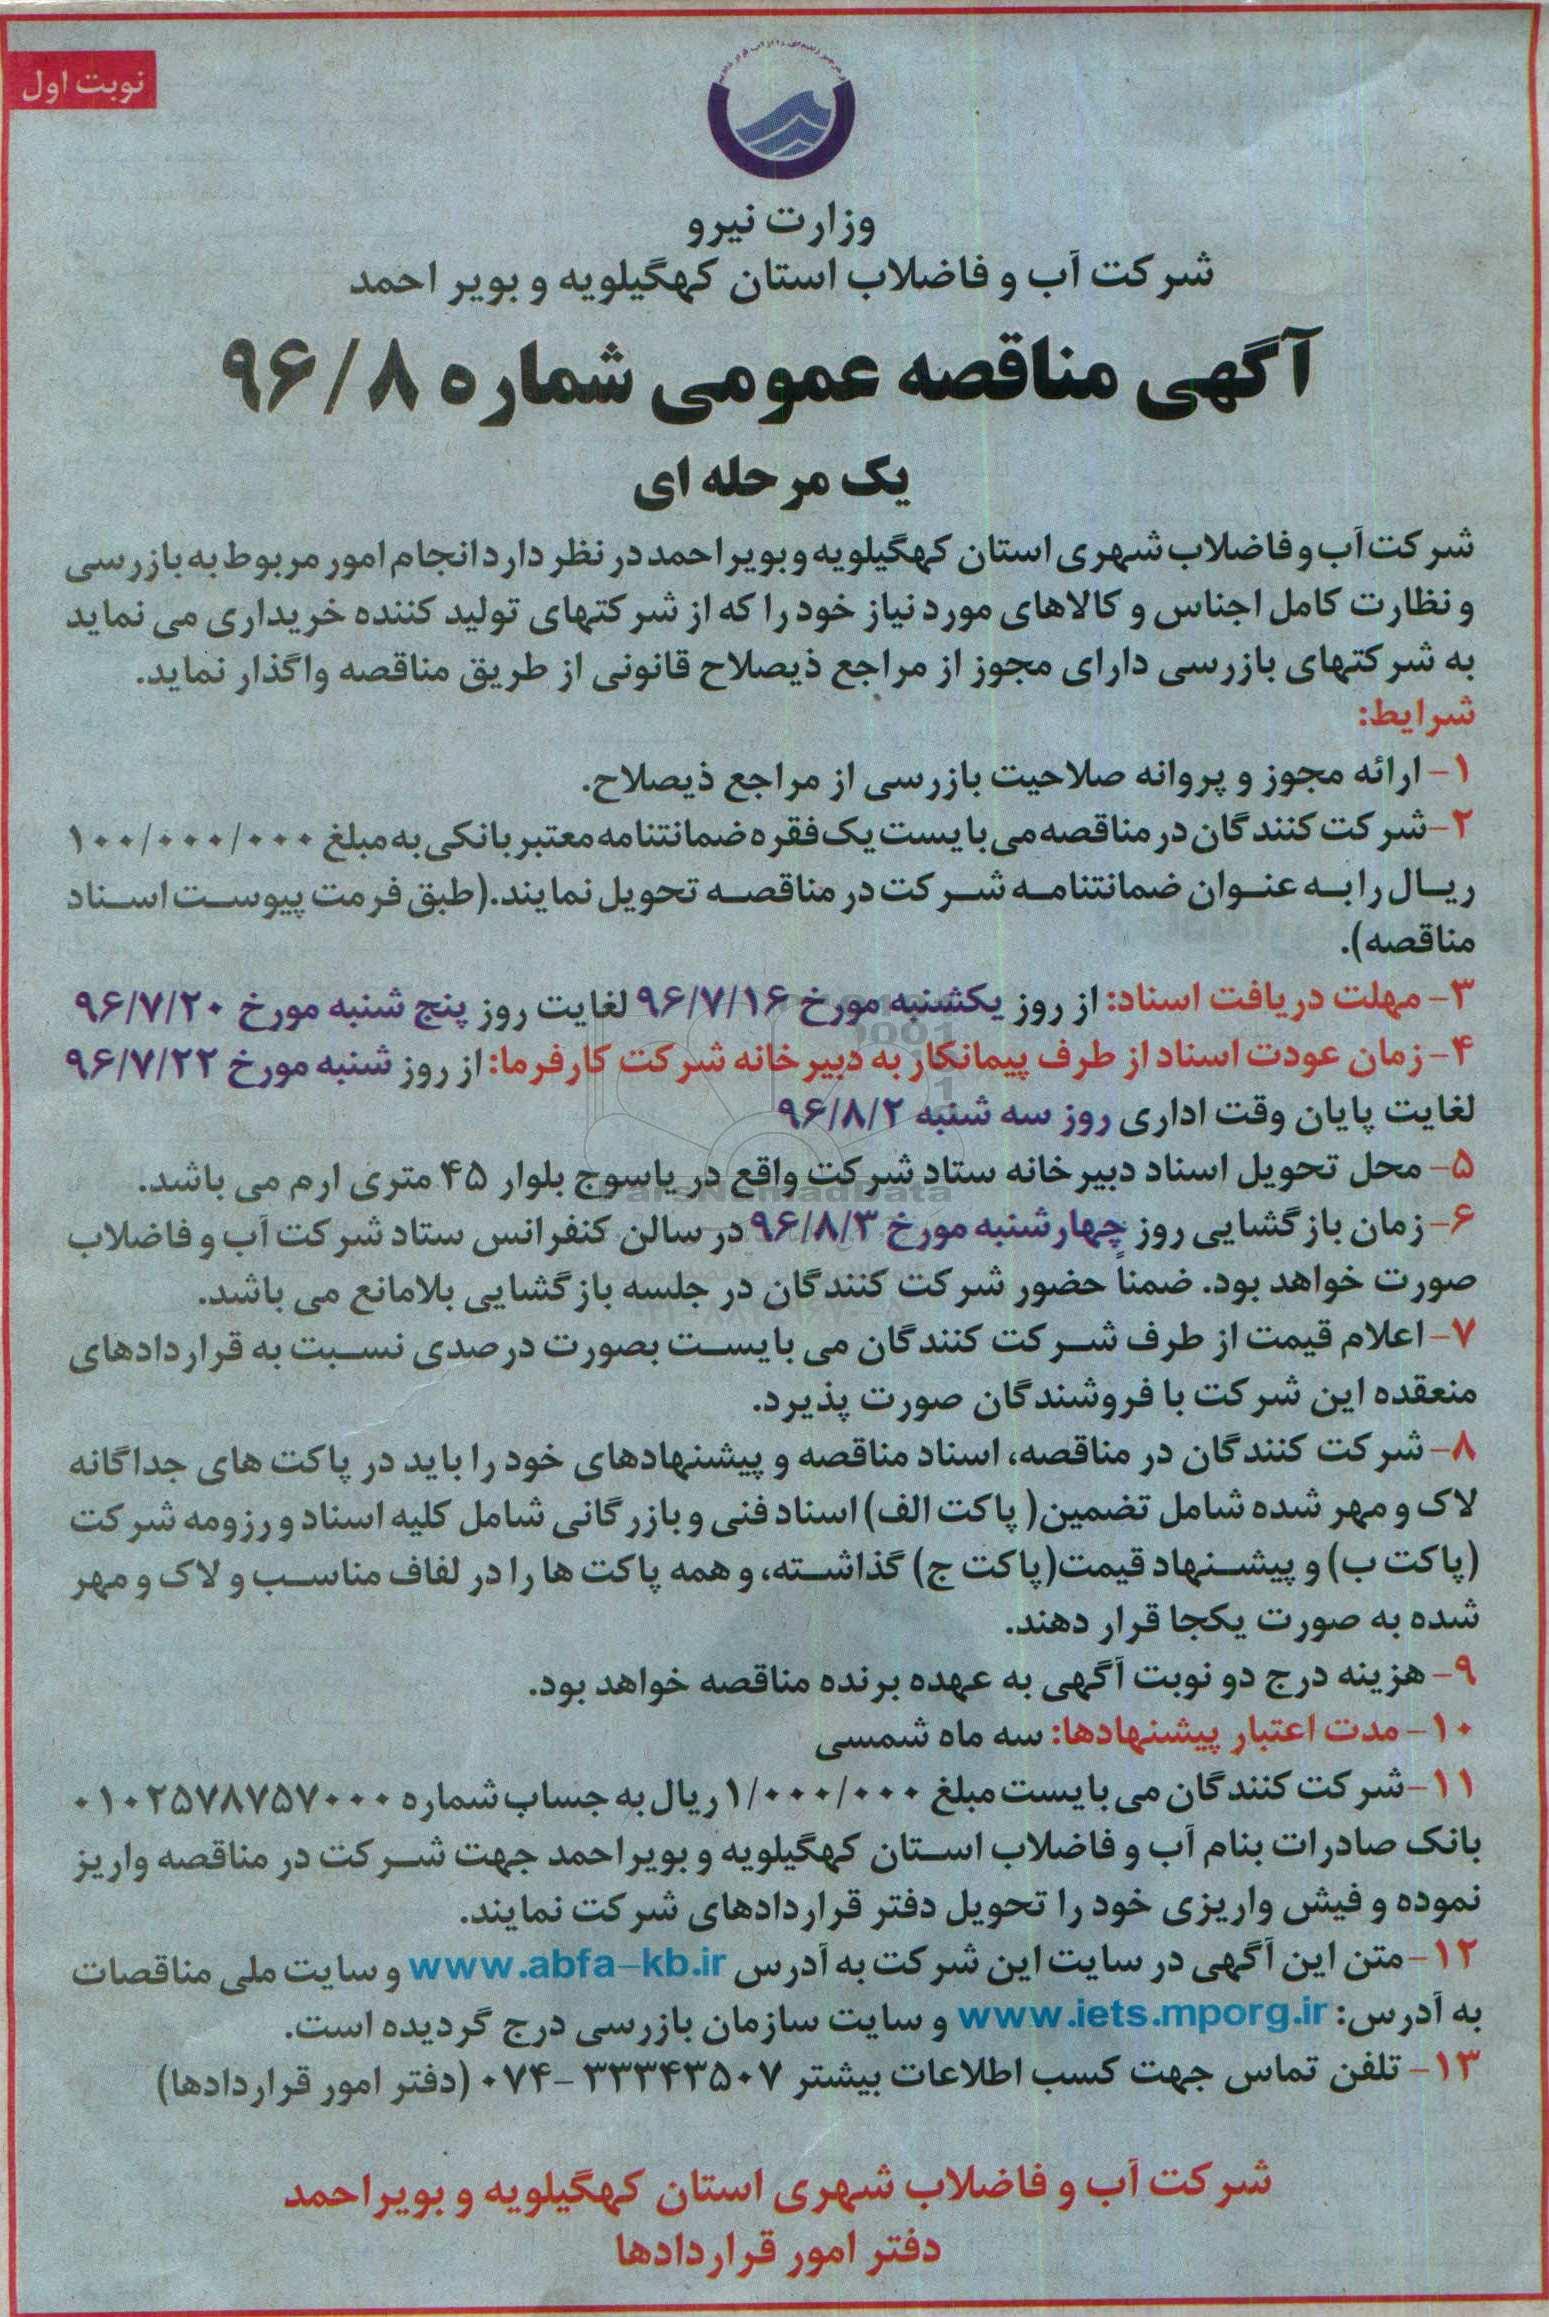 نوبت اول
وزارت نیرو
شرکت آب و فاضلاب استان کهگیلویه و بویر احمد
آگهی مناقصه عمومی شماره ۹۶/۸
یک مرحله ای
شرکت آب و فاضلاب شهری استان کهگیلویه و بویر احمد در نظر دارد انجام امور مربوط به بازرسی
و نظارت کامل اجناس و کالاهای مورد نیاز خود را که از شرکتهای تولید کننده خریداری می نماید
به شرکتهای بازرسی دارای مجوز از مراجع ذیصلاح قانونی از طریق مناقصه واگذار نماید.
شرایط:
۱- ارائه مجوز و پروانه صلاحیت بازرسی از مراجع ذیصلاح.
۲- شرکت کنندگان در مناقصه می بایست یک فقره ضمانتنامه معتبر بانکی به مبلغ ۱۰۰/۰۰۰/۰۰۰
ریال را به عنوان ضمانتنامه شرکت در مناقصه تحویل نمایند.(طبق فرمت پیوست اسناد
مناقصه).
۳- مهلت دریافت اسناد: از روز یکشنبه مورخ ۹۶/۷/۱۶ لغایت روز پنج شنبه مورخ ۹۶/۷/۲۰
۴- زمان عودت اسناد از طرف پیمانکار به دبیرخانه شرکت کارفرما: از روز شنبه مورخ ۹۶/۷/۲۲
لغایت پایان وقت اداری روز سه شنبه ۹۶/۸/۲
۵- محل تحویل اسناد دبیرخانه ستاد شرکت واقع در یاسوج بلوار ۴۵ متری ارم می باشد.
ParsNamadData
۶- زمان بازگشایی روز چهارشنبه مورخ ۹۶/۸/۳ در سالن کنفرانس ستاد شرکت آب و فاضلاب
صورت خواهد بود. ضمناً حضور شرکت کنندگان در جلسه بازگشایی بلامانع می باشد.
۷- اعلام قیمت از طرف شرکت کنندگان می بایست بصورت درصدی نسبت به قراردادهای
منعقده این شرکت با فروشندگان صورت پذیرد.
۸- شرکت کنندگان در مناقصه، اسناد مناقصه و پیشنهادهای خود را باید در پاکت های جداگانه
لاک و مهر شده شامل تضمین( پاکت الف) اسناد فنی و بازرگانی شامل کلیه اسناد و رزومه شرکت
(پاکت ب) و پیشنهاد قیمت(پاکت ج) گذاشته، و همه پاکت ها را در لفاف مناسب و لاک و مهر
شده به صورت یکجا قرار دهند.
۹- هزینه درج دو نوبت آگهی به عهده برنده مناقصه خواهد بود.
۱۰- مدت اعتبار پیشنهادها: سه ماه شمسی
۱۱- شرکت کنندگان می بایست مبلغ ۱/۰۰۰/۰۰۰ ریال به حساب شماره ۰۱۰۲۵۷۸۷۵۷۰۰۰
بانک صادرات بنام آب و فاضلاب استان کهگیلویه و بویراحمد جهت شرکت در مناقصه واریز
نموده و فیش واریزی خود را تحویل دفتر قراردادهای شرکت نمایند.
۱۲- متن این آگهی در سایت این شرکت به آدرس www.abfa-kb.ir و سایت ملی مناقصات
به آدرس: www.iets.mporg.ir و سایت سازمان بازرسی درج گردیده است.
۱۳- تلفن تماس جهت کسب اطلاعات بیشتر ۳۳۳۴۳۵۰۷ -۰۷۴ (دفتر امور قراردادها)
شرکت آب و فاضلاب شهری استان کهگیلویه و بویراحمد
دفتر امور قراردادها